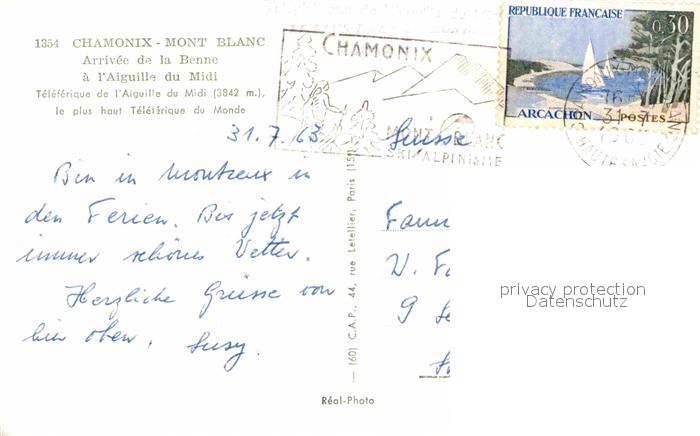 1354 CHAMONIX - MONT BLANC
Arrivée de la Benne
à l'Aiguille du Midi
Téléférique de l'Aiguille du Midi (3842 m.),
le plus haut Téléférique du Monde
CHAMONIX
MONT BLANC
SKI ALPINISME
REPUBLIQUE FRANÇAISE
0,30
ARCACHON POSTES
31.7.63
Suisse
Bin in Montreux in
den Ferien. Bis jetzt
immer schönes Wetter.
Herzliche Grüsse von
hier oben, Susy.
(60) C.A.P., 44, rue Letellier, Paris (15
Réal-Photo
privacy protection
Datenschutz